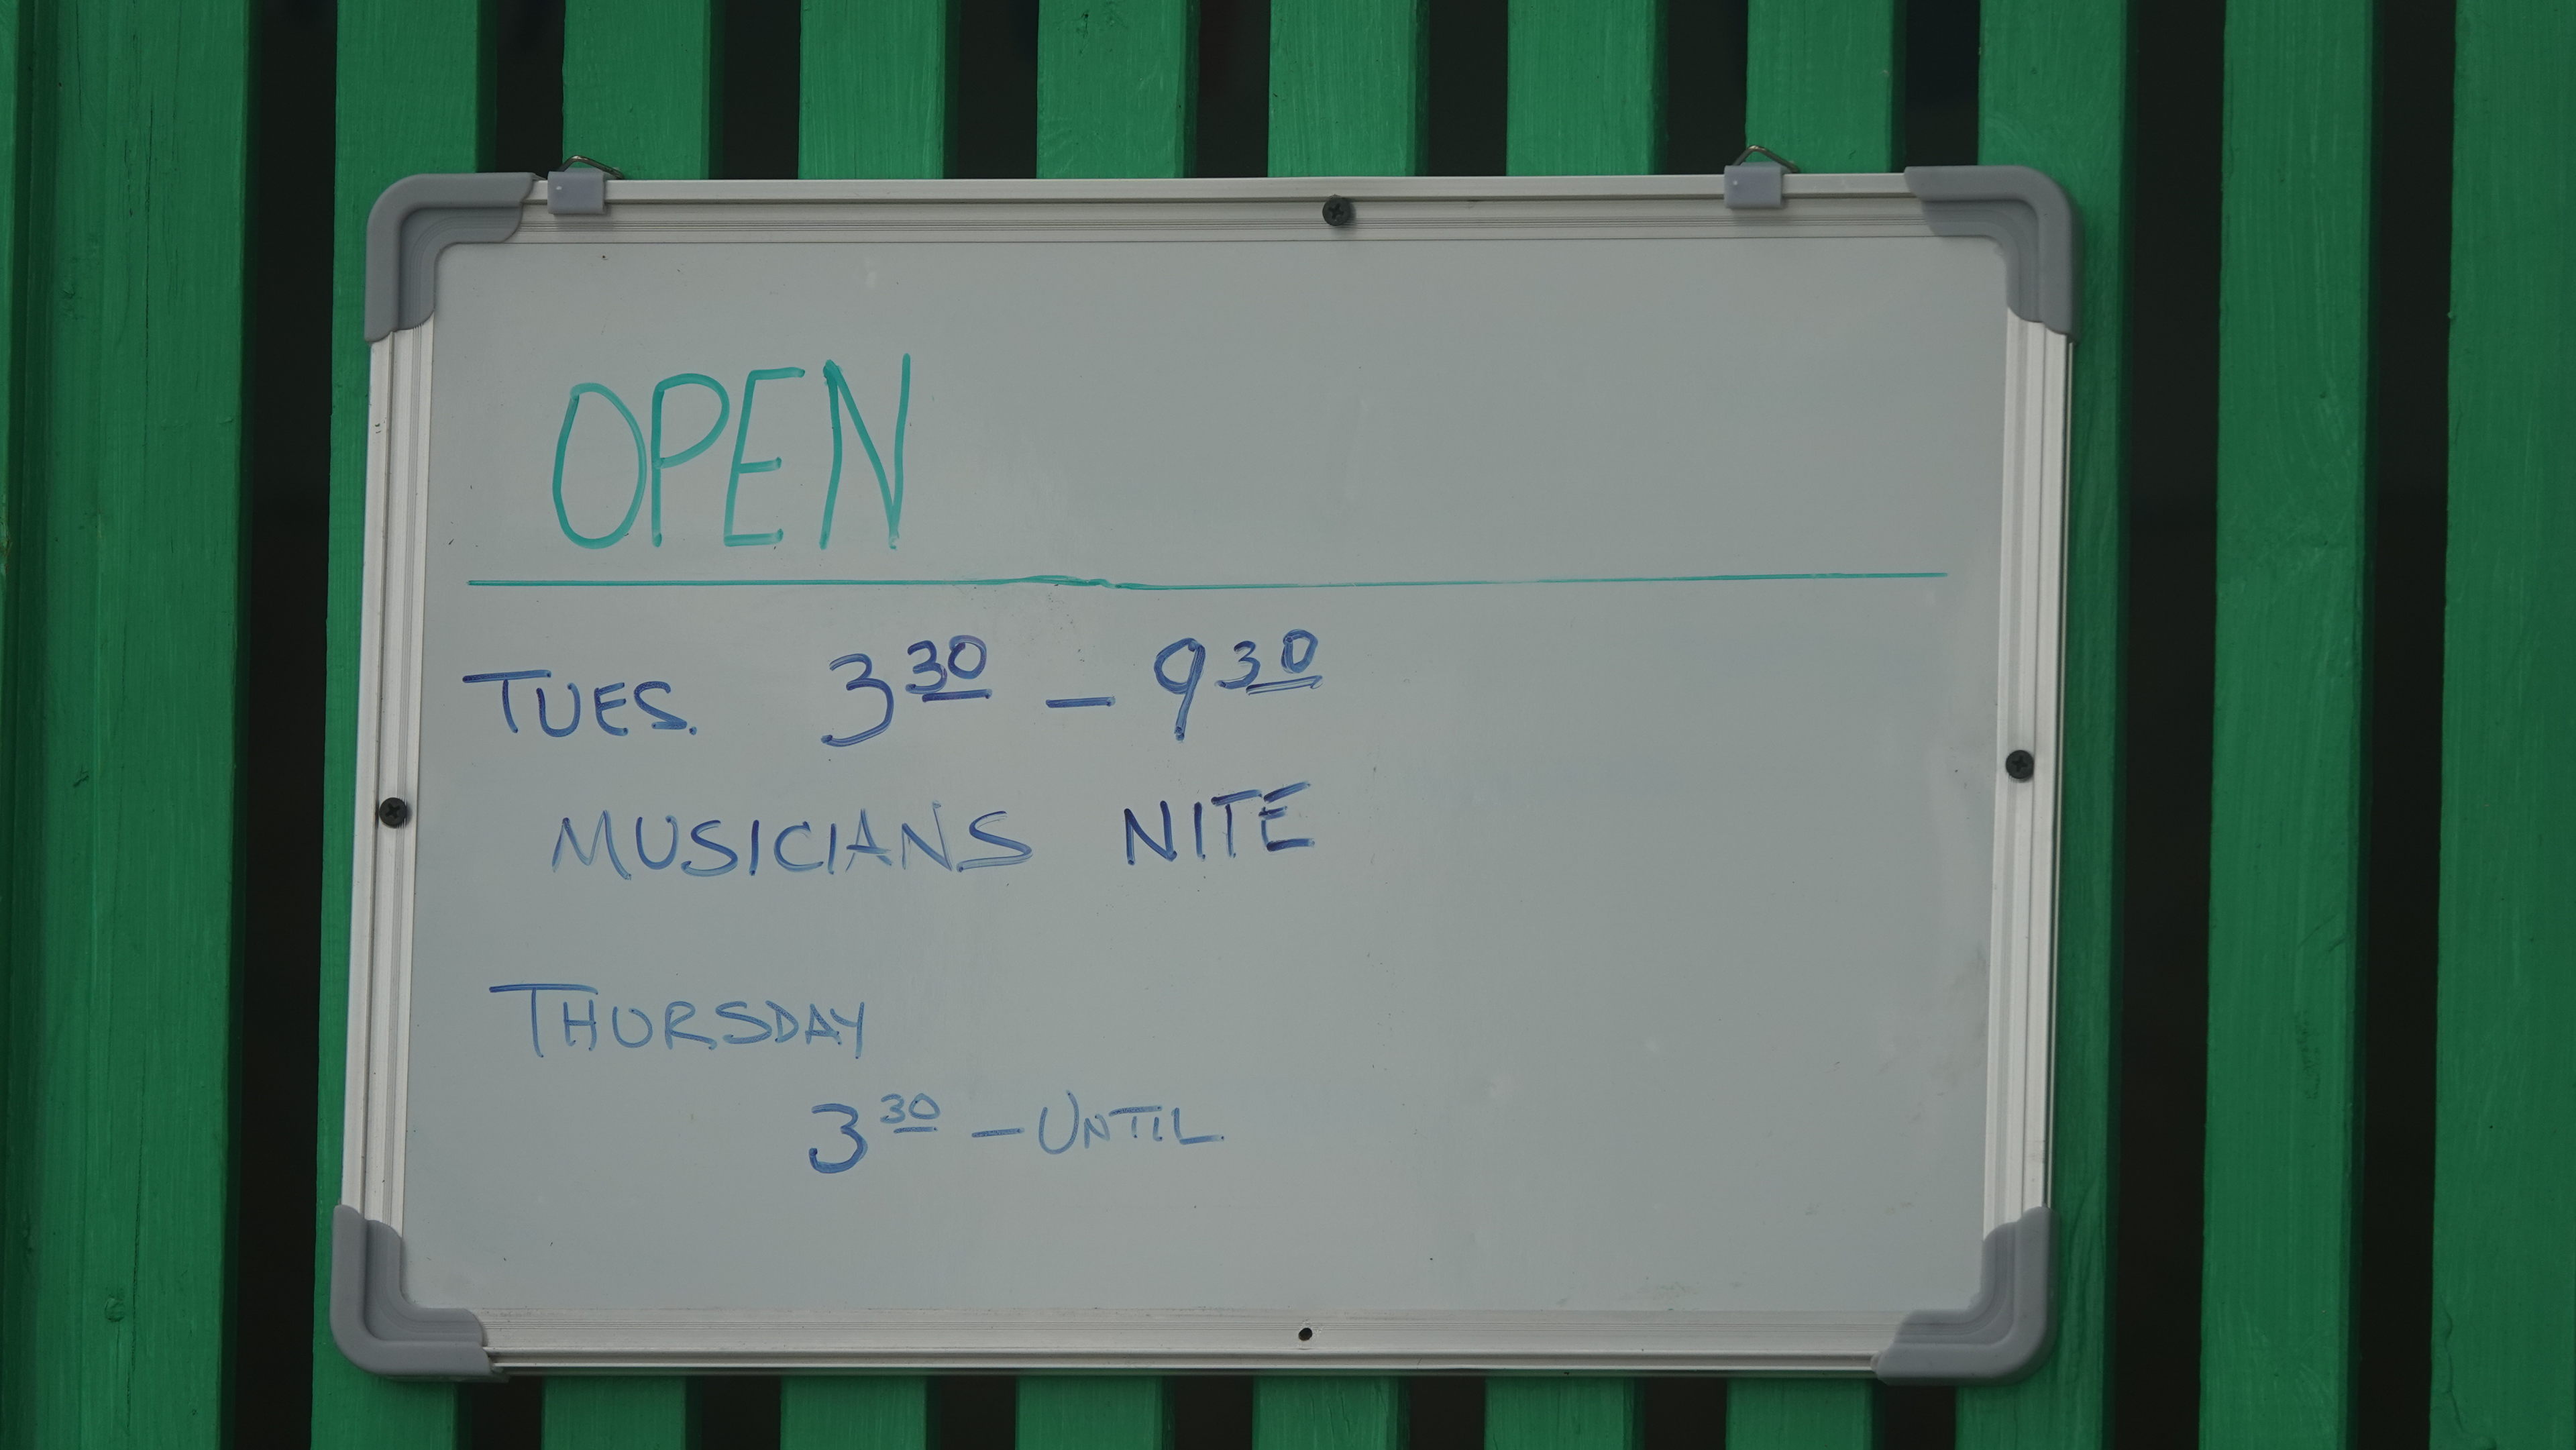 OPEN
TUES. 3 30 - 9 30
MUSICIANS NITE
THURSDAY
3 30 - UNTIL